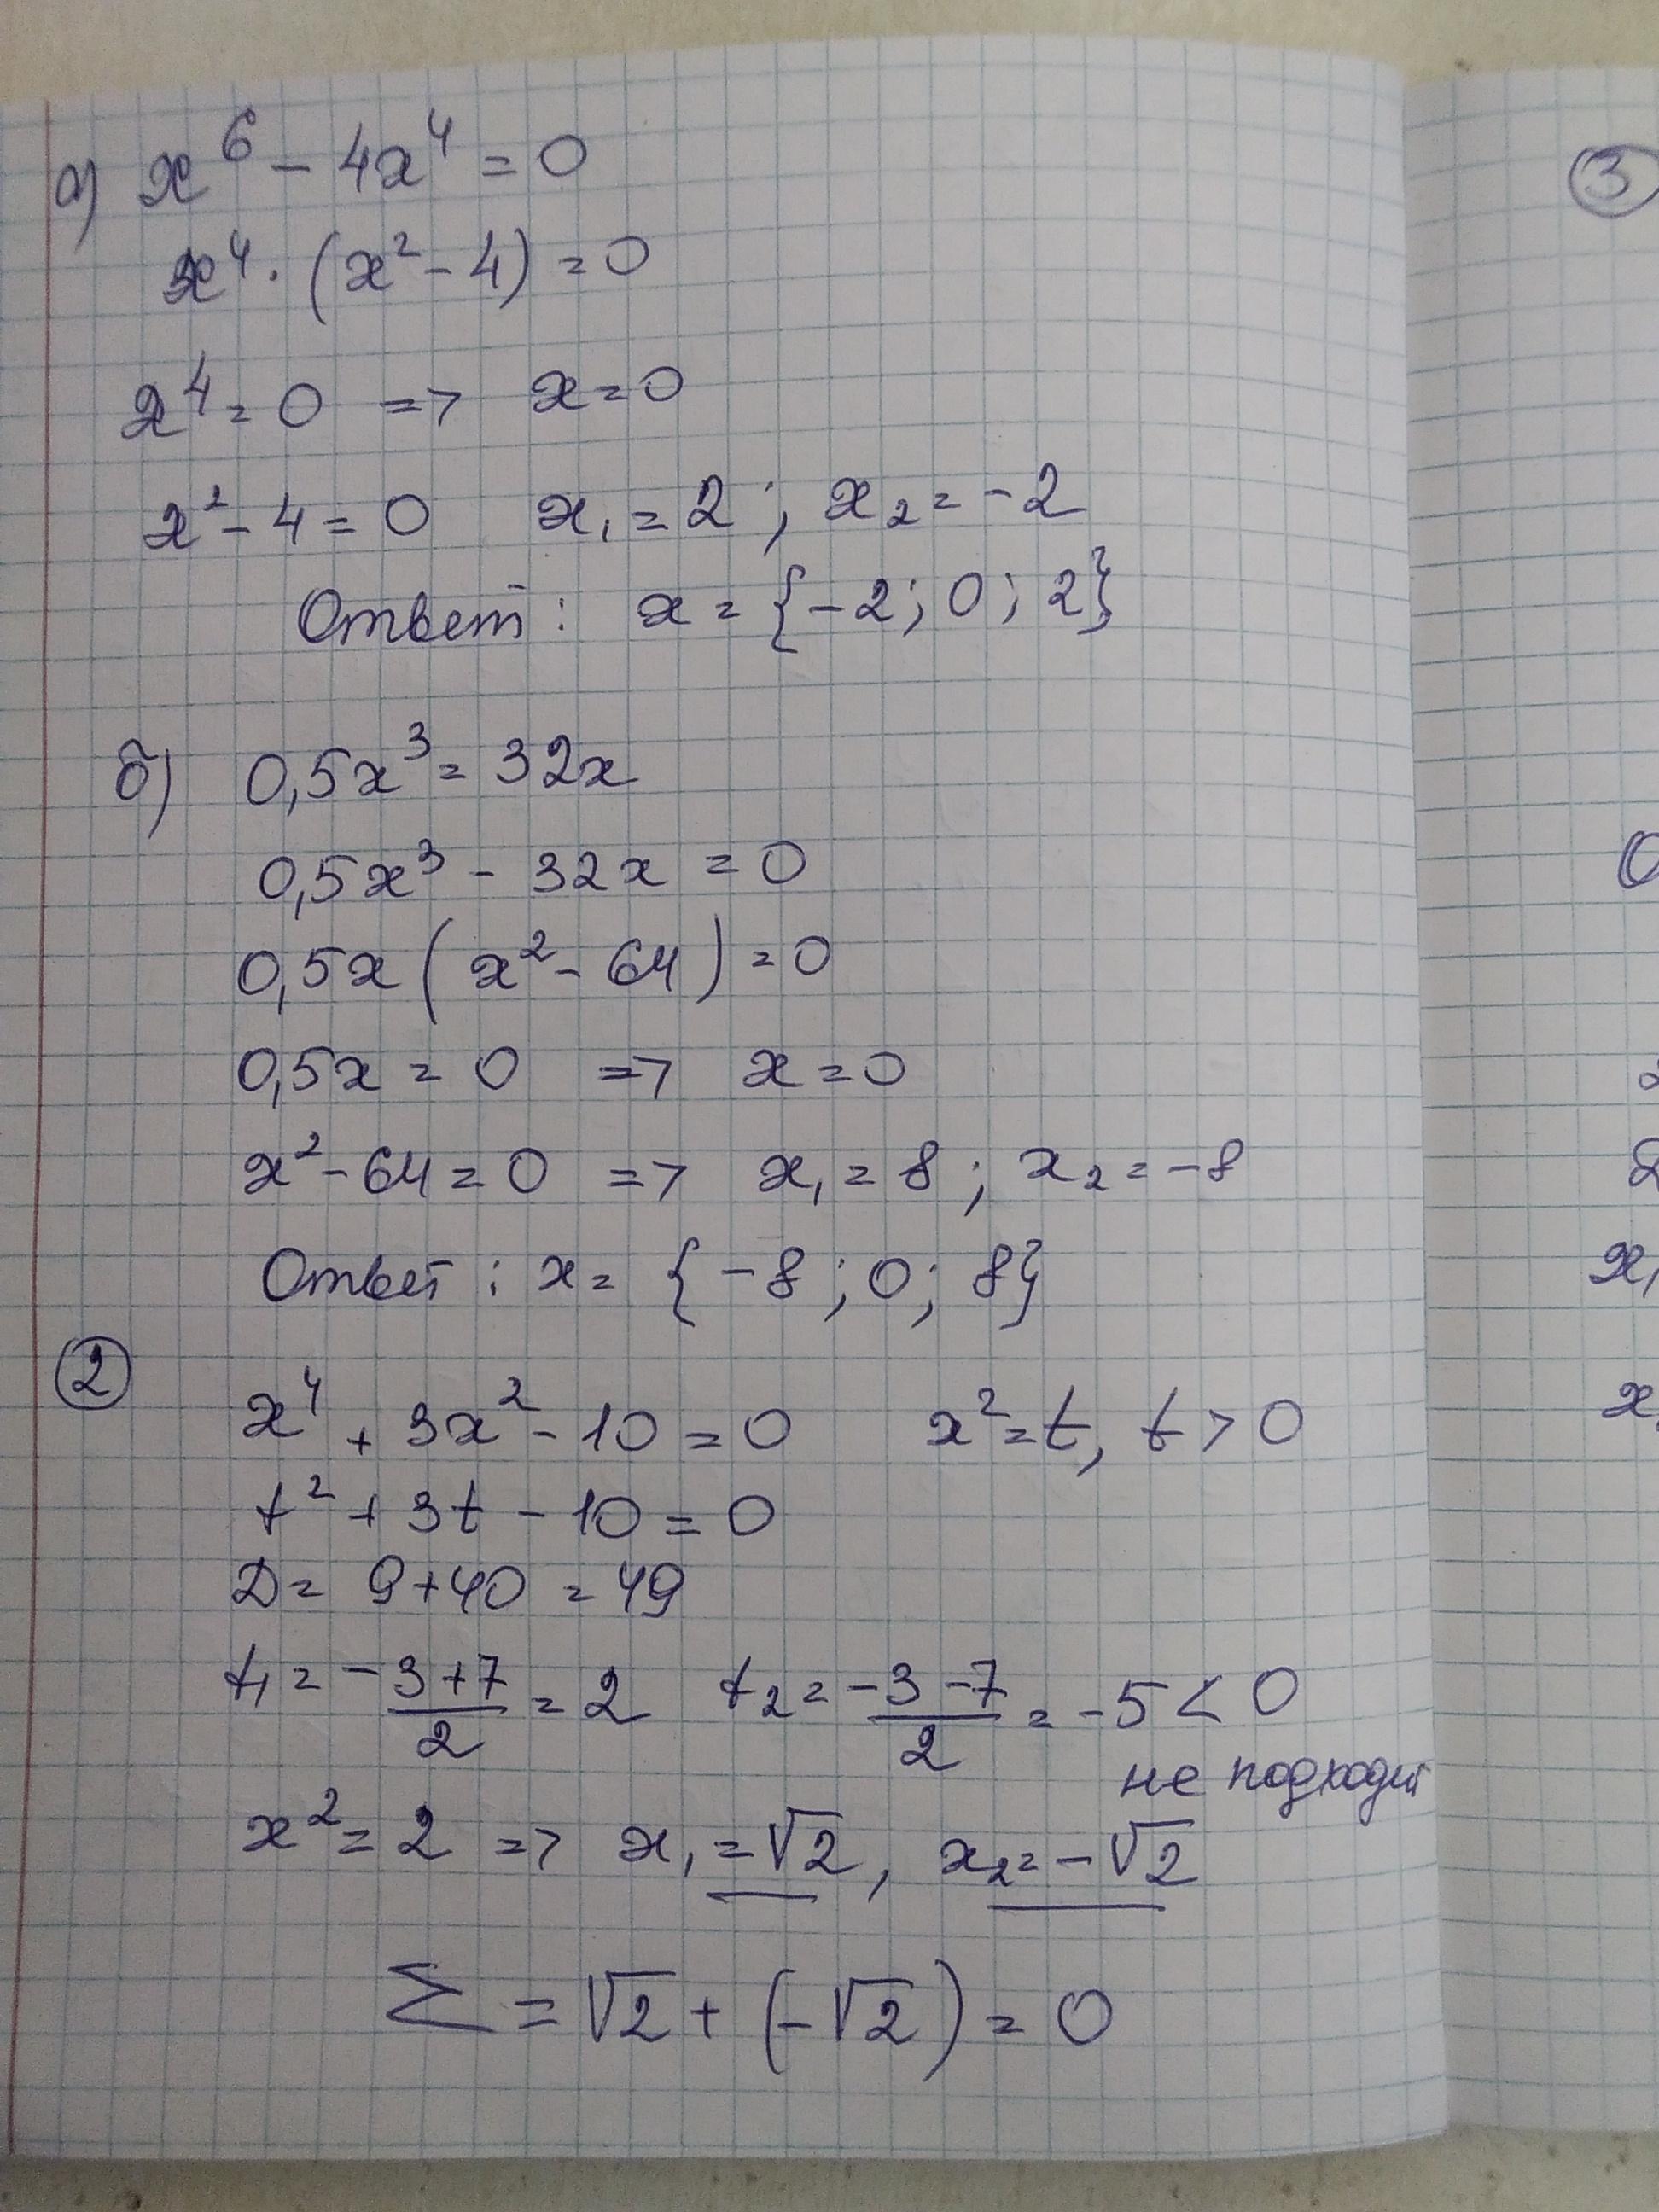 а) x⁶ - 4x⁴ = 0
x⁴ · (x² - 4) = 0
x⁴ = 0 => x = 0
x² - 4 = 0 x₁ = 2 ; x₂ = -2
Ответ : x = {-2 ; 0 ; 2}
б) 0,5x³ = 32x
0,5x³ - 32x = 0
0,5x (x² - 64) = 0
0,5x = 0 => x = 0
x² - 64 = 0 => x₁ = 8 ; x₂ = -8
Ответ : x = {-8 ; 0 ; 8}
② x⁴ + 3x² - 10 = 0 x² = t, t > 0
t² + 3t - 10 = 0
D = 9 + 40 = 49
t₁ = -3+7/2 = 2 t₂ = -3-7/2 = -5 < 0
не подходит
x² = 2 => x₁ = √2 , x₂ = -√2
Σ = √2 + (-√2) = 0
③